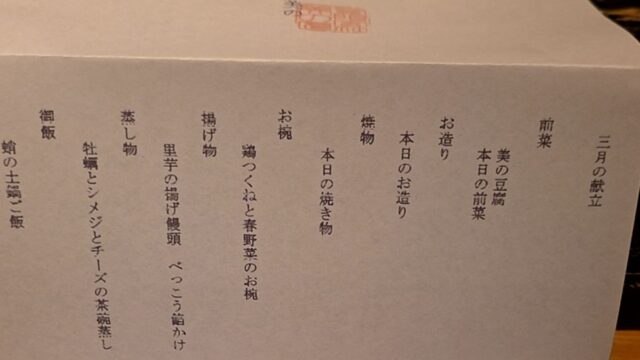 三月の献立
前菜
美の豆腐
本日の前菜
お造り
本日のお造り
焼物
本日の焼き物
お椀
鶏つくねと春野菜のお椀
揚げ物
里芋の揚げ饅頭　べっこう餡かけ
蒸し物
牡蠣とシメジとチーズの茶碗蒸し
御飯
蛤の土鍋ご飯
美の